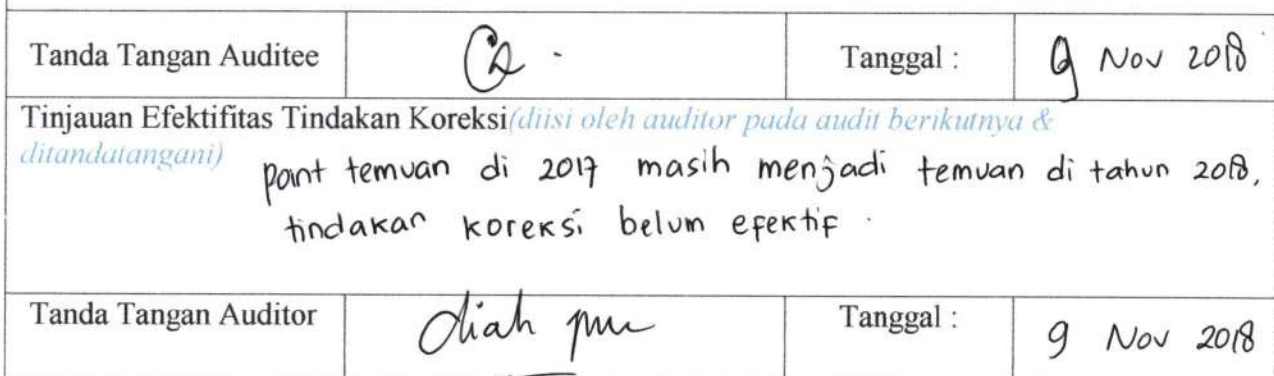 Tanda Tangan Auditee Tanggal : 9 Nov 2018
Tinjauan Efektifitas Tindakan Koreksi(diisi oleh auditor pada audit berikutnya &
ditandatangani)
point temuan di 2017 masih menjadi temuan di tahun 2018,
tindakan koreksi belum efektif.
Tanda Tangan Auditor diah Tanggal : 9 Nov 2018